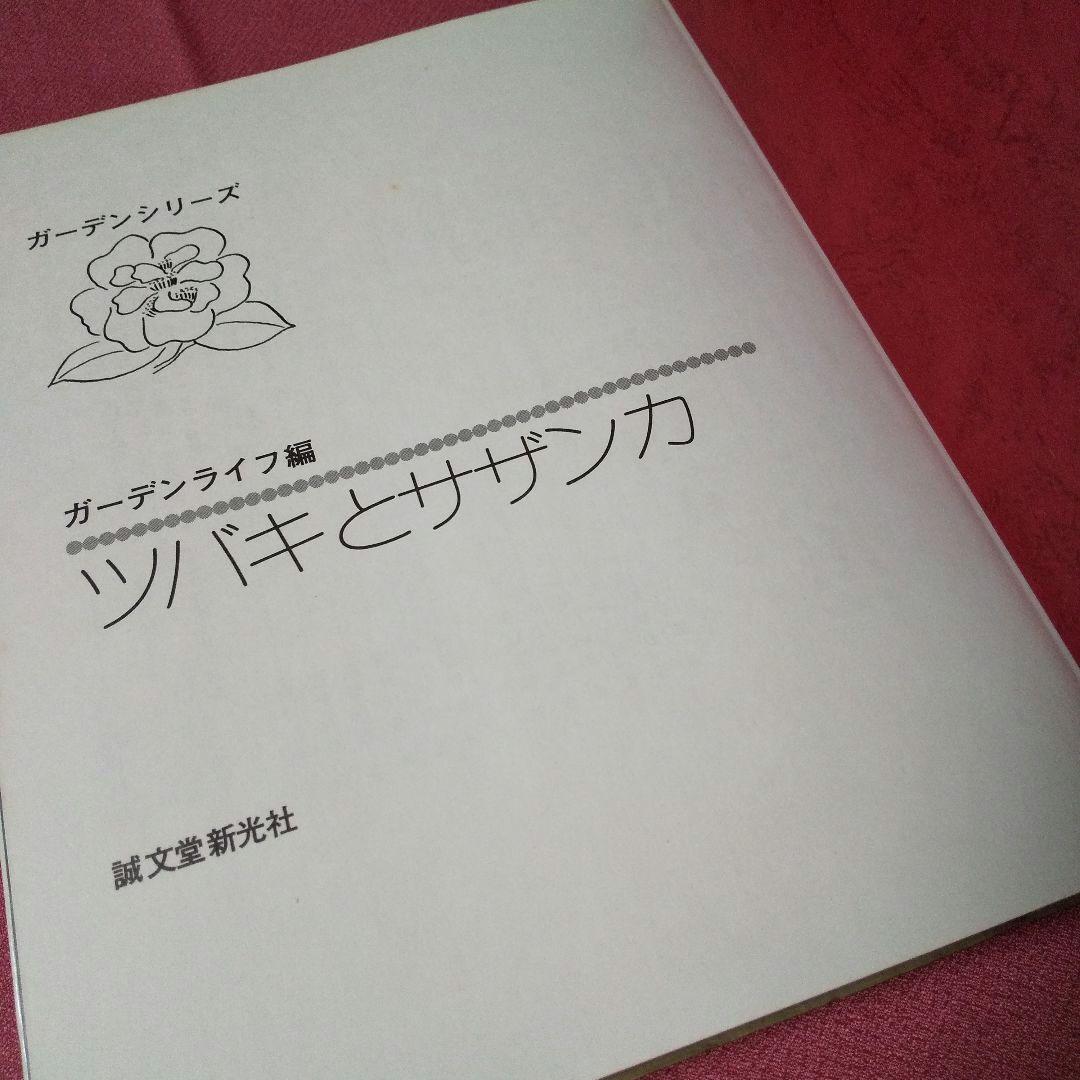 ガーデンシリーズ
ガーデンライフ編
ツバキとサザンカ
誠文堂新光社